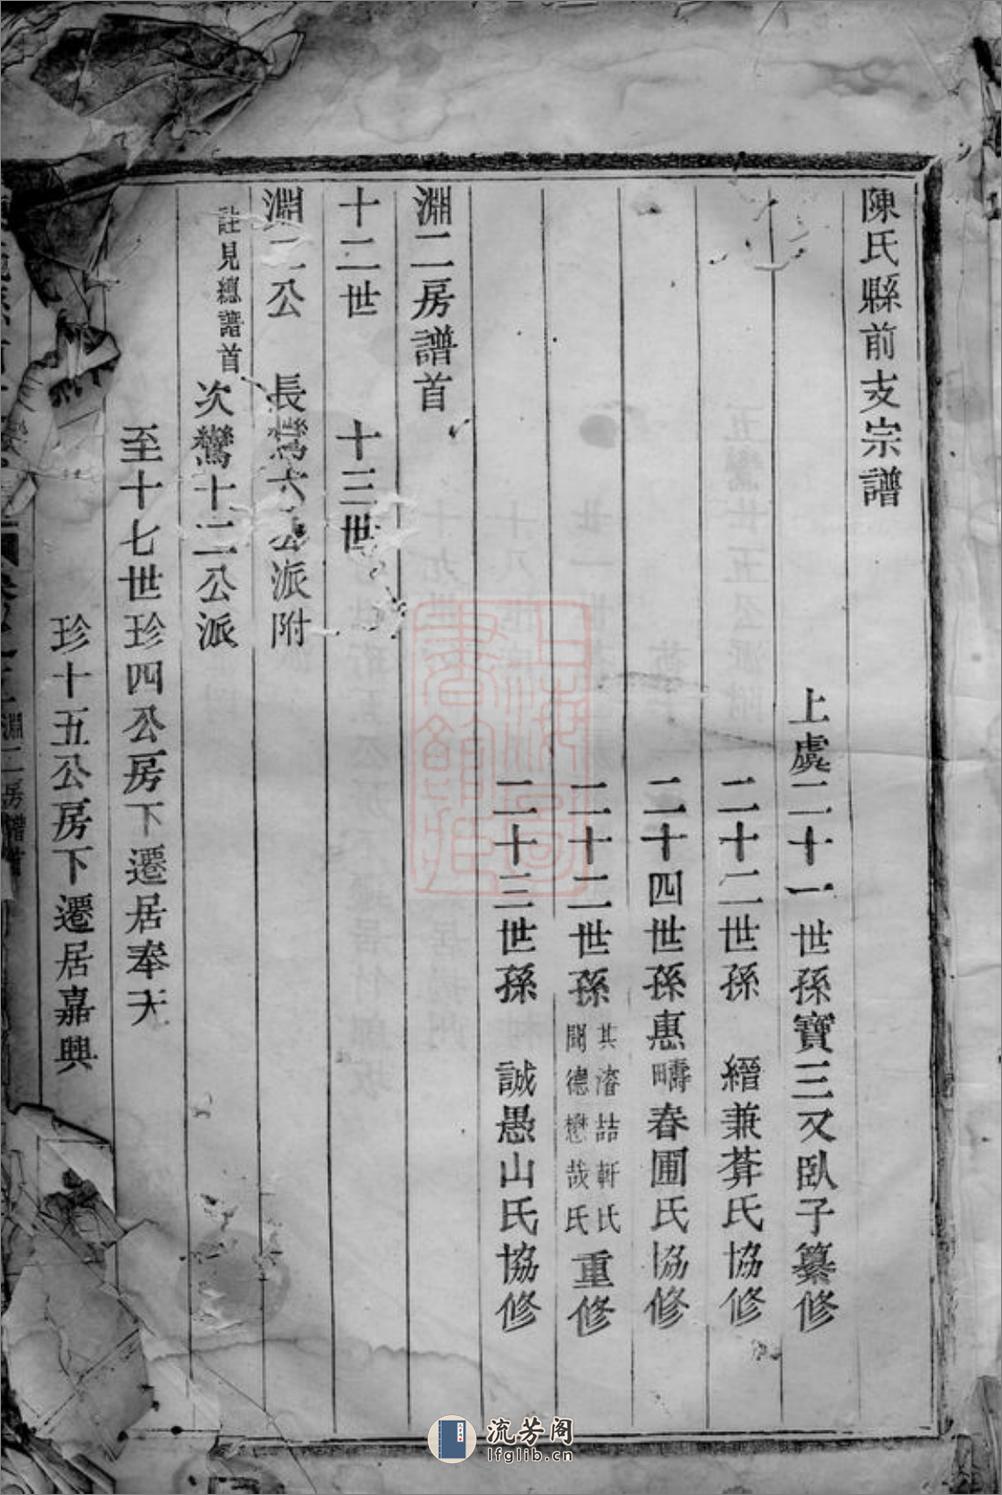 陳氏縣前支宗譜
上虞二十一世孫寶三又臥子纂修
二十二世孫 縉兼葊氏協修
二十四世孫惠疇春圃氏協修
二十二世孫其濬喆軒氏聞德懋哉氏重修
二十三世孫 誠愚山氏協修
淵二房譜首
十二世 十三世
淵二公 長鸞六公派附
註見總譜首 次鸞十二公派
至十七世珍四公房下遷居奉天
珍十五公房下遷居嘉興
淵二房譜首
上海圖書館藏
流芳阁
lfglib.cn